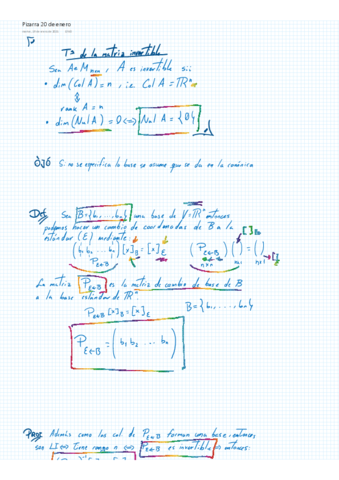 Pizarra 20 de enero
Tª de la matriz invertible
Sea A∈M_{n×n}, A es invertible sii:
• dim(Col A) = n, i.e. Col A = ℝⁿ
⇕
rank A = n
• dim(Nul A) = 0 ⇔ Nul A = {0}
Ojo Si no se especifica la base se asume que se da en la canónica
Def: Sea B={b₁, ..., bₙ} una base de V=ℝⁿ entonces
podemos hacer un cambio de coordenadas de B a la
estándar (E) mediante:
(b₁ b₂ ... bₙ) [x]_B = [x]_E (P_{E←B}) ( ) = ( )
P_{E←B} n×n n×1 n×1
[ ]_B
[ ]_E
La matriz P_{E←B} es la matriz de cambio de base de B
a la base estándar de ℝⁿ
P_{E←B} [x]_B = [x]_E B={b₁, ..., bₙ}
P_{E←B} = (b₁ b₂ ... bₙ)
Prop: Además como las col de P_{E←B} forman una base entonces,
son LI ⇔ Tiene rango n ⇔ P_{E←B} es invertible ⇔ entonces: